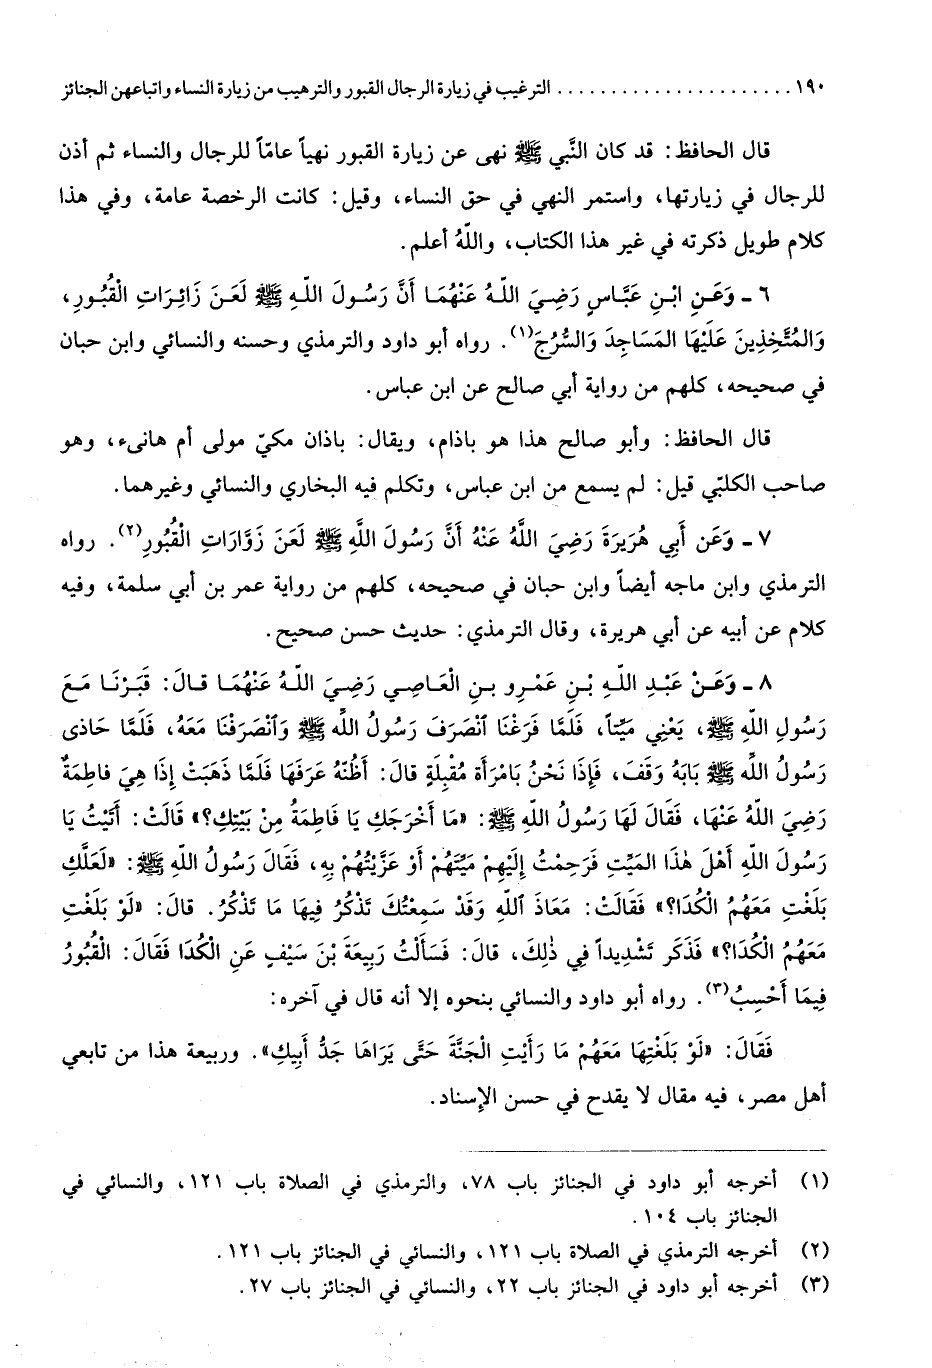 ١٩٠ ...................... الترغيب في زيارة الرجال القبور والترهيب من زيارة النساء واتباعهن الجنائز
قال الحافظ: قد كان النَّبي ﷺ نهى عن زيارة القبور نهياً عامّاً للرجال والنساء ثم أذن
للرجال في زيارتها، واستمر النهي في حق النساء، وقيل: كانت الرخصة عامة، وفي هذا
كلام طويل ذكرته في غير هذا الكتاب، واللَّهُ أعلم.
٦ ـ وَعَنِ ابْنِ عَبَّاسٍ رَضِيَ اللَّهُ عَنْهُمَا أَنَّ رَسُولَ اللَّهِ ﷺ لَعَنَ زَائِرَاتِ الْقُبُورِ،
وَالمُتَّخِذِينَ عَلَيْهَا المَسَاجِدَ وَالسُّرُجَ(١). رواه أبو داود والترمذي وحسنه والنسائي وابن حبان
في صحيحه، كلهم من رواية أبي صالح عن ابن عباس.
قال الحافظ: وأبو صالح هذا هو باذام، ويقال: باذان مكيّ مولى أم هانىء، وهو
صاحب الكلبّي قيل: لم يسمع من ابن عباس، وتكلم فيه البخاري والنسائي وغيرهما.
٧ ـ وَعَن أَبِي هُرَيرَةَ رَضِيَ اللَّهُ عَنْهُ أَنَّ رَسُولَ اللَّهِ ﷺ لَعَنَ زَوَّارَاتِ الْقُبُورِ(٢). رواه
الترمذي وابن ماجه أيضاً وابن حبان في صحيحه، كلهم من رواية عمر بن أبي سلمة، وفيه
كلام عن أبيه عن أبي هريرة، وقال الترمذي: حديث حسن صحيح.
٨ ـ وَعَنْ عَبْدِ اللَّهِ بْنِ عَمْرِو بنِ الْعَاصِي رَضِيَ اللَّهُ عَنْهُمَا قالَ: قَبَرْنَا مَعَ
رَسُولِ اللَّهِ ﷺ، يَعْنِي مَيِّتاً، فَلَمَّا فَرَغْنَا ٱنْصَرَفَ رَسُولُ اللَّهِ ﷺ وَٱنْصَرَفْنَا مَعَهُ، فَلَمَّا حَاذى
رَسُولُ اللَّهِ ﷺ بَابَهُ وَقَفَ، فَإِذَا نَحْنُ بَامْرَأة مُقْبِلَةٍ قالَ: أَظُنّهُ عَرَفَهَا فَلَمَّا ذَهَبَتْ إِذَا هِيَ فاطِمَةُ
رَضِيَ اللَّهُ عَنْهَا، فَقَالَ لَهَا رَسُولُ اللَّهِ ﷺ: «مَا أَخْرَجَكِ يَا فَاطِمَةُ مِنْ بَيْتِكِ؟» قَالَتْ: أَتَيْتُ يَا
رَسُولَ اللَّهِ أَهْلَ هٰذَا المَيِّتِ فَرَحِمْتُ إِلَيهِمْ مَيِّتَهُمْ أَوْ عَزَّيْتُهُمْ بِهِ، فَقَالَ رَسُولُ اللَّهِ ﷺ: «لَعَلَّكِ
بَلَغْتِ مَعَهُمُ الْكُدَا؟» فَقَالَتْ: مَعَاذَ ٱللَّهِ وَقَدْ سَمِعْتُكَ تَذْكُرُ فِيهَا مَا تَذْكُرُ. قالَ: «لَوْ بَلَغْتِ
مَعَهُمُ الْكُدَا؟» فَذَكَر تَشْدِيداً فِي ذٰلِكَ، قالَ: فَسَأَلْتُ رَبِيعَةَ بْنَ سَيْفٍ عَنِ الْكُدَا فَقَالَ: الْقُبُورُ
فِيمَا أَحْسِبُ(٣). رواه أبو داود والنسائي بنحوه إلا أنه قال في آخره:
فَقَالَ: «لَوْ بَلَغْتِهَا مَعَهُمْ مَا رَأَيْتِ الْجَنَّةَ حَتَّى يَرَاهَا جَدُّ أَبِيكِ». وربيعة هذا من تابعي
أهل مصر، فيه مقال لا يقدح في حسن الإسناد.
(١) أخرجه أبو داود في الجنائز باب ٧٨، والترمذي في الصلاة باب ١٢١، والنسائي في
الجنائز باب ١٠٤.
(٢) أخرجه الترمذي في الصلاة باب ١٢١، والنسائي في الجنائز باب ١٢١.
(٣) أخرجه أبو داود في الجنائز باب ٢٢، والنسائي في الجنائز باب ٢٧.